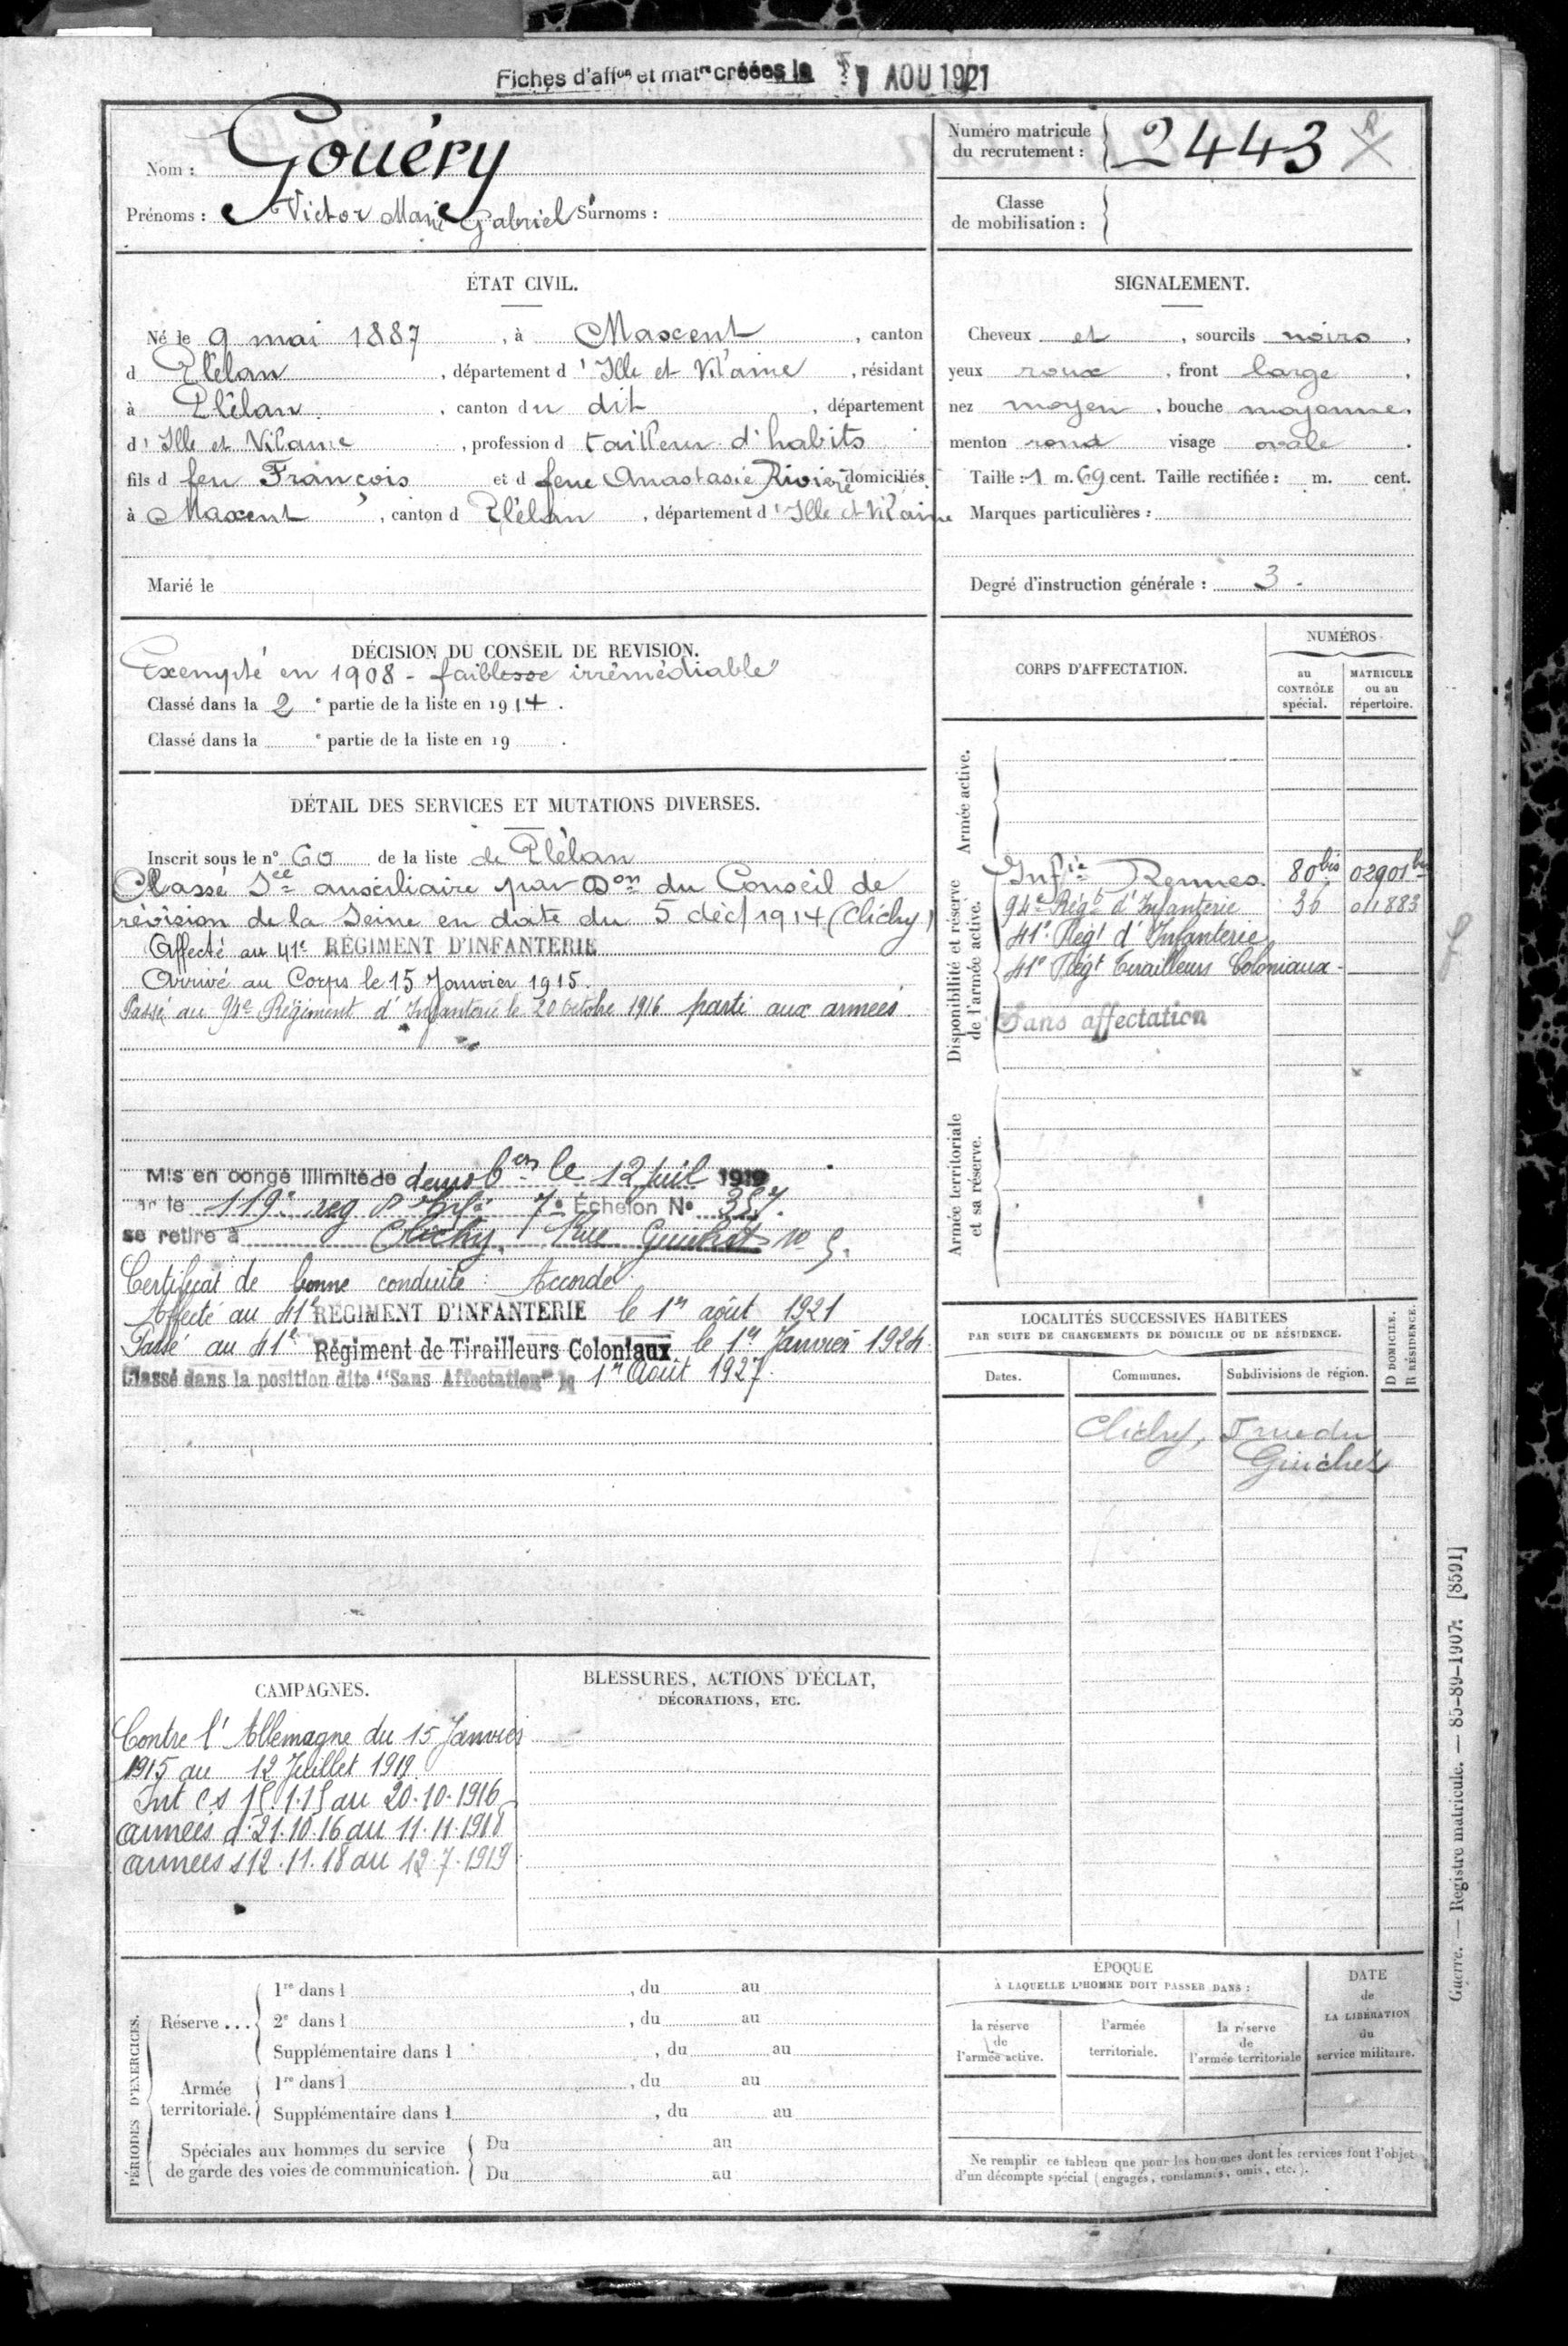 Fiches d'aff^on et mat^re créées le 7 AOU 1921
Nom : Gouéry
Prénoms : Victor Marie Gabriel Surnoms :
Numéro matricule
du recrutement : 2443
Classe
de mobilisation :
ÉTAT CIVIL.
Né le 9 mai 1887, à Maxent, canton
d Plélan, département d'Ille et Vilaine, résidant
à Plélan, canton du dit, département
d'Ille et Vilaine, profession d tailleur d'habits
fils d feu François et d feue Anastasie Rivière domiciliés
à Maxent, canton d Plélan, département d'Ille et Vilaine
Marié le
SIGNALEMENT.
Cheveux et, sourcils noirs,
yeux roux, front large,
nez moyen, bouche moyenne,
menton rond visage ovale.
Taille : 1 m. 69 cent. Taille rectifiée : m. cent.
Marques particulières :
Degré d'instruction générale : 3.
DÉCISION DU CONSEIL DE REVISION.
Exempté en 1908 - faiblesse irrémédiable"
Classé dans la 2e partie de la liste en 1914.
Classé dans la e partie de la liste en 19 .
DÉTAIL DES SERVICES ET MUTATIONS DIVERSES.
Inscrit sous le n° 60 de la liste de Plélan
Classé Sce auxiliaire par Don du Conseil de
révision de la Seine en date du 5 déc/1914 (Clichy)
Affecté au 41e RÉGIMENT D'INFANTERIE
Arrivé au Corps le 15 Janvier 1915.
Passé au 94e Régiment d'Infanterie le 20 Octobre 1916 parti aux armées.
Mis en congé illimité de démobon le 12 Juil 1919
par le 119e reg d'Infie 7e Échelon N° 357.
se retire à Clichy, Rue Guichet n° 5.
Certificat de bonne conduite : Accordé
Affecté au 41e RÉGIMENT D'INFANTERIE le 1er août 1921
Passé au 41e Régiment de Tirailleurs Coloniaux le 1er Janvier 1924.
Classé dans la position dite "Sans Affectation" le 1er Août 1927.
CORPS D'AFFECTATION.
NUMÉROS
au
CONTRÔLE
spécial.
MATRICULE
ou au
répertoire.
Armée active.
Disponibilité et réserve
de l'armée active.
Infie Rennes. 80bis 02901bis
94e Régt d'Infanterie 36 011883
41e Régt d'Infanterie
41e Régt Tirailleurs Coloniaux
Sans affectation
Armée territoriale
et sa réserve.
LOCALITÉS SUCCESSIVES HABITÉES
PAR SUITE DE CHANGEMENTS DE DOMICILE OU DE RÉSIDENCE.
D DOMICILE.
R RÉSIDENCE.
Dates. Communes. Subdivisions de région.
Clichy, 5 rue du
Guichet
CAMPAGNES.
Contre l'Allemagne du 15 Janvier
1915 au 12 Juillet 1919
Int C.S 15.1.15 au 20.10.1916
armées d 21.10.16 au 11.11.1918
armées s 12.11.18 au 12.7.1919
BLESSURES, ACTIONS D'ÉCLAT,
DÉCORATIONS, ETC.
PÉRIODES D'EXERCICES.
Réserve...
1re dans l , du au
2e dans l , du au
Supplémentaire dans l , du au
Armée
territoriale.
1re dans l , du au
Supplémentaire dans l , du au
Spéciales aux hommes du service
de garde des voies de communication.
Du au
Du au
ÉPOQUE
À LAQUELLE L'HOMME DOIT PASSER DANS :
la réserve
de
l'armée active.
l'armée
territoriale.
la réserve
de
l'armée territoriale
DATE
de
LA LIBÉRATION
du
service militaire.
Ne remplir ce tableau que pour les hommes dont les services font l'objet
d'un décompte spécial (engagés, condamnés, omis, etc.).
Guerre. — Registre matricule. — 85-89-1907. [8591]